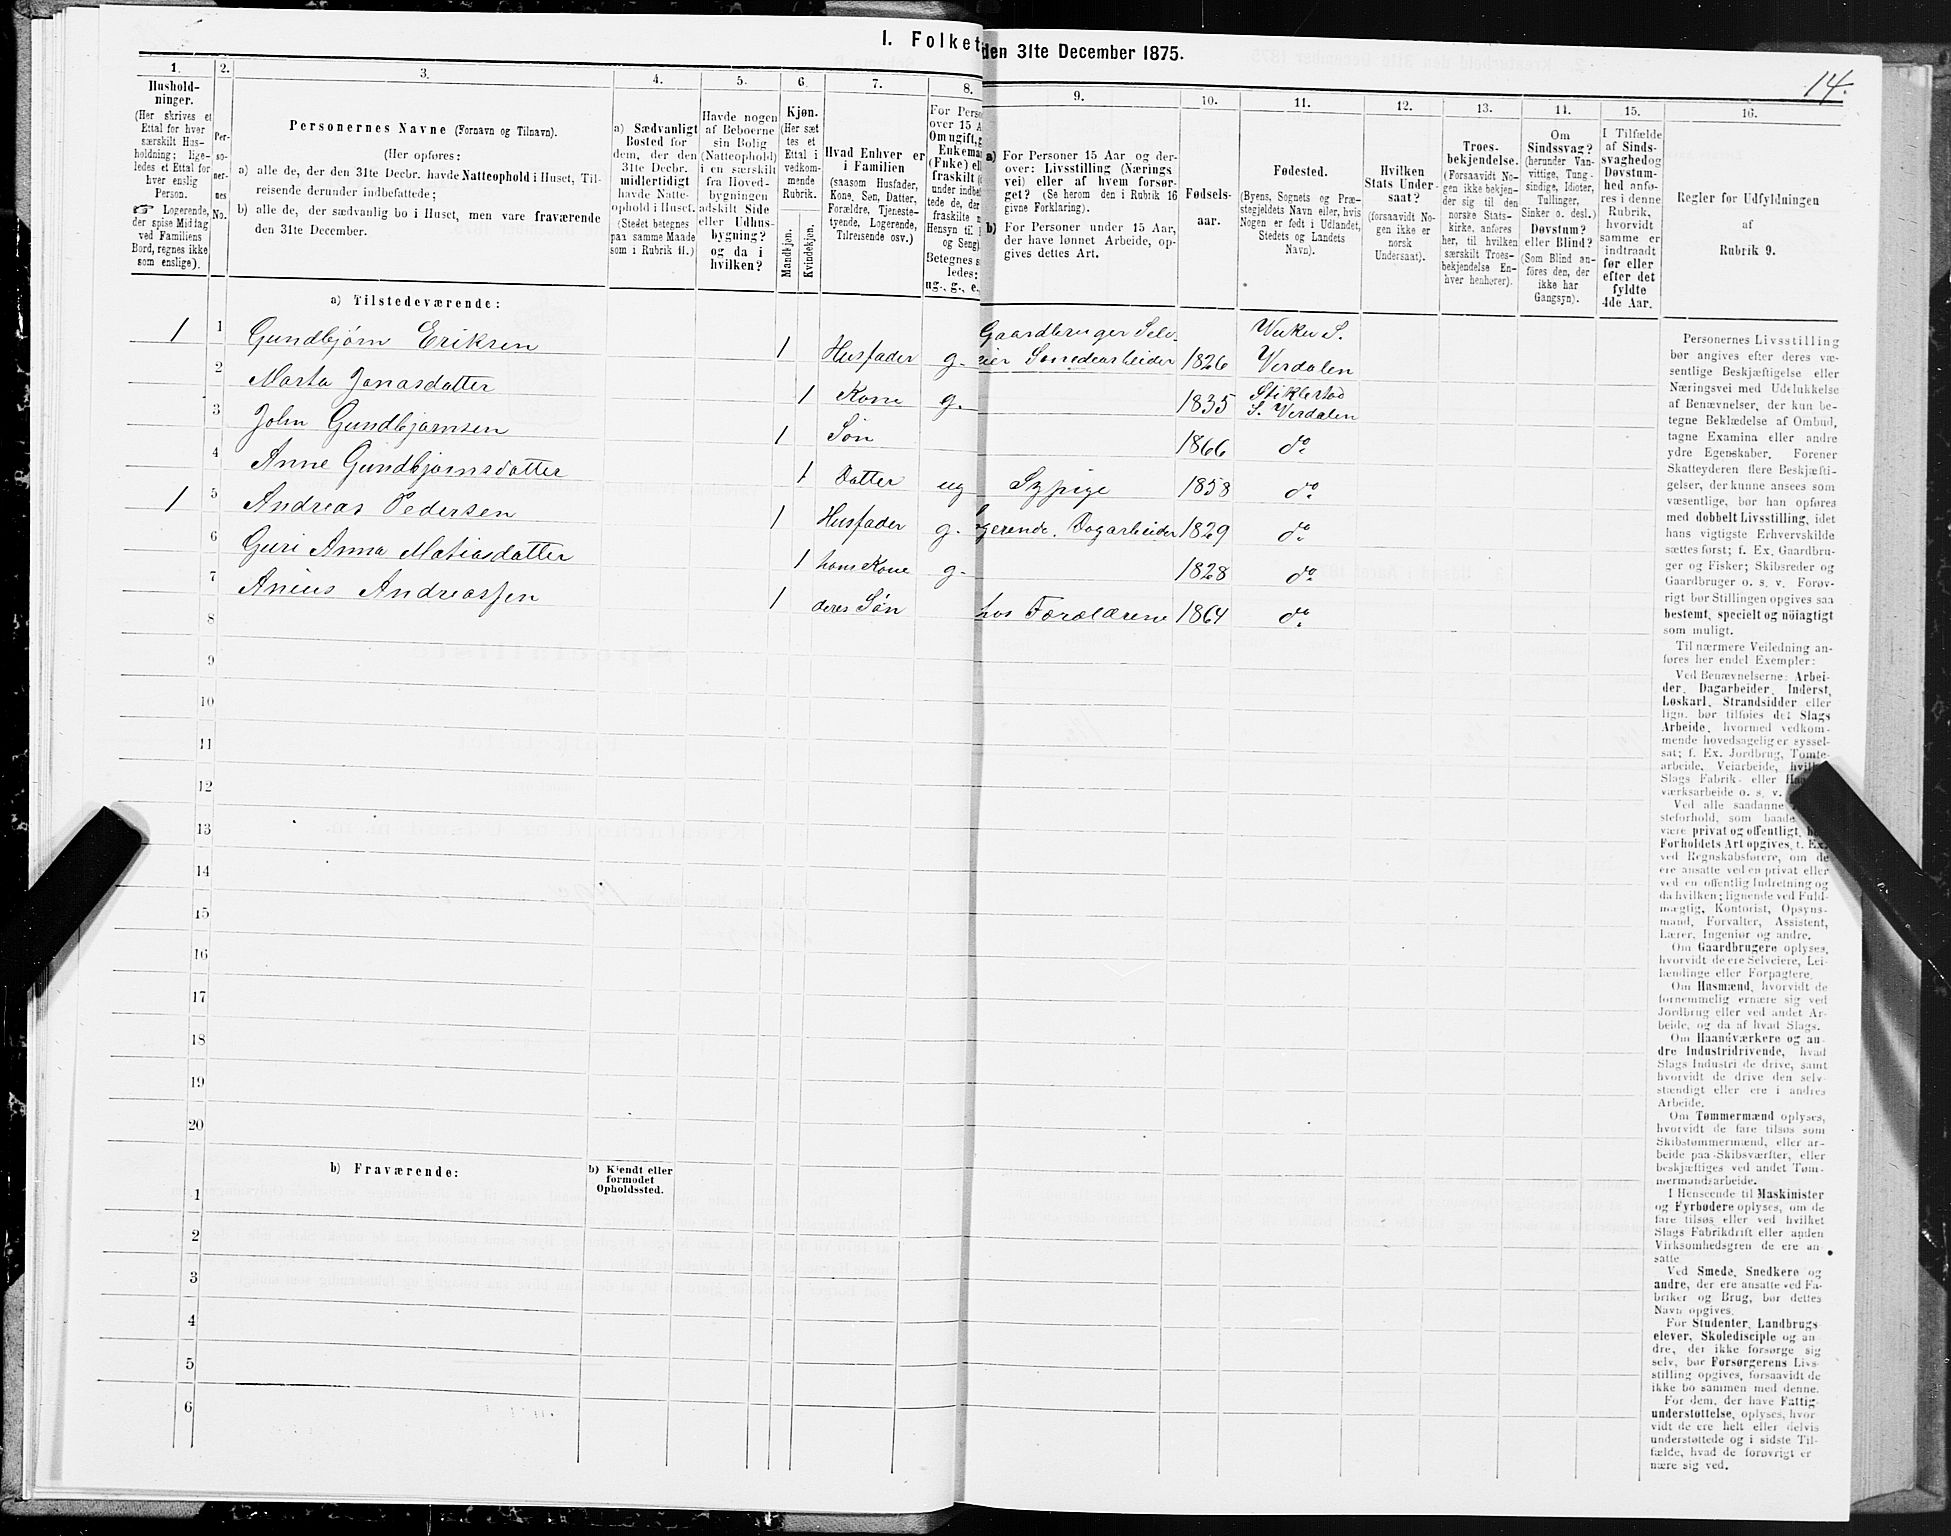 I. Folket
den 31te December 1875.
14.
1.
Hushold-
ninger.
(Her skrives et
Ettal for hver
særskilt Hus-
holdning; lige-
ledes et Ettal for
hver enslig
Person.
☞ Logerende,
der spise Middag
ved Familiens
Bord, regnes ikke
som enslige).
2.
Per-
so-
ner-
nes
No.
3.
Personernes Navne (Fornavn og Tilnavn).
(Her opføres:
a) alle de, der den 31te Decbr. havde Natteophold i Huset, Til-
reisende derunder indbefattede;
b) alle de, der sædvanlig bo i Huset, men vare fraværende
den 31te December.
4.
a) Sædvanligt
Bosted for
dem, der den
31te Decbr.
midlertidigt
havde Natte-
ophold i Huset.
(Stedet betegnes
paa samme Maade
som i Rubrik 11.)
5.
Havde nogen
af Beboerne
sin Bolig
(Natteophold)
i en særskilt
fra Hoved-
bygningen
adskilt Side
eller Udhus-
bygning?
og da i
hvilken?
6.
Kjøn.
(Her sæt
tes et
Ettal i
vedkom-
mende
Rubrik.
Mandkjøn.
Kvindekjøn.
7.
Hvad Enhver er
i Familien
(saasom Husfader,
Kone, Søn, Datter,
Forældre, Tjeneste-
tyende, Logerende,
Tilreisende osv.)
8.
For Perso
over 15 A
Om ugift, g
Enkema
(Fuke) el
fraskilt (
under indbe
tede de, der
fraskilte m
Hensyn til
og Seng)
Betegnes s
ledes:
ug., g., e.
9.
a) For Personer 15 Aar og der-
over: Livsstilling (Nærings
vei) eller af hvem forsør-
get? (Se herom den i Rubrik 16
givne Forklaring).
b) For Personer under 15 Aar,
der have lønnet Arbeide, op-
gives dettes Art.
10.
Fødsels-
aar.
11.
Fødested.
(Byens, Sognets og Præ-
stegjeldets Navn eller, hvis
Nogen er født i Udlandet,
Stedets og Landets
Navn).
12.
Hvilken
Stats Under-
saat?
(forsaavidt No-
gen ikke er
norsk
Undersaat).
13.
Troes-
bekjendelse.
(Forsaavidt No-
gen ikke bekjen-
der sig til den
norske Stats-
kirke, anføres
her, til hvilken
særskilt Troes-
bekjendelse En-
hver henhører).
14.
Om
Sindssvag?
(herunder Van-
vittige, Tung-
sindige, Idioter,
Tullinger,
Sinker o. desl.)
Døvstum?
eller Blind?
(Som Blind an-
føres den, der
ikke har
Gangsyn).
15.
I Tilfælde
af Sinds-
svaghed og
Døvstum-
hed anfø-
res i denne
Rubrik,
hvorvidt
samme er
indtraadt
før eller
efter det
fyldte
4de Aar.
16.
Regler for Udfyldningen
af
Rubrik 9.
a) Tilstedeværende:
1 1 Gundbjørn Eriksen 1 Husfader g. Gaardbruger Selv-
eier Smedearbeider 1826 Vuku S.
Verdalen
2 Marta Jonasdatter 1 Kone g. 1835 Stiklestad
S. Verdalen
3 John Gundbjørnsen 1 Søn 1866 do
4 Anne Gundbjørnsdatter 1 Datter ug Sypige 1858 do
1 5 Andreas Pedersen 1 Husfader g. gerende. Dagarbeider 1829 do
6 Guri Anna Matiasdatter 1 hans Kone g. 1828 do
7 Anius Andreassen 1 deres Søn hos Forældrene 1864 do
8
9
10
11
12
13
14
15
16
17
18
19
20
b) Fraværende:
b) Kjendt eller
formodet
Opholdssted.
1
2
3
4
5
6
Personernes Livsstilling
bør angives efter deres væ-
sentlige Beskjæftigelse eller
Næringsvei med Udelukkelse
af Benævnelser, der kun be-
tegne Beklædelse af Ombud,
tagne Examina eller andre
ydre Egenskaber. Forener
Skatteyderen flere Beskjæfti-
gelser, der kunne ansees som
væsentlige, bør han opføres
med dobbelt Livsstilling, idet
hans vigtigste Erhvervskilde
sættes først; f. Ex. Gaardbru-
ger og Fisker; Skibsreder og
Gaardbruger o. s. v. Forøv-
rigt bør Stillingen opgives saa
bestemt, specielt og nöiagtigt
som muligt.
Til nærmere Veiledning an-
føres her endel Exempler:
Ved Benævnelserne: Arbei-
der, Dagarbeider, Inderst,
Løskarl, Strandsidder eller
lign. bør tilføies det Slags
Arbeide, hvormed vedkom-
mende hovedsagelig er syssel-
sat; f. Ex. Jordbrug, Tomte-
arbeide, Veiarbeide, hvil
Slags Fabrik- eller Ha
værksarbeide o. s. v.
Ved alle saadanne
steforhold, som baade
være privat og offentligt, b
Forholdets Art opgives, f. Ex.
ved Regnskabsførere, om de
ere ansatte ved en privat eller
ved en offentlig Indretning og
da hvilken; lignende ved Fuld-
mægtig, Kontorist, Opsyns-
mand, Forvalter, Assistent,
Lærer, Ingeniør og andre.
Om Gaardbrugere oplyses,
hvorvidt de ere Selveiere, Lei-
lændinge eller Forpagtere.
Om Husmænd, hvorvidt de
fornemmelig ernære sig ved
Jordbrug eller ved andet Ar-
beide, og da af hvad Slags.
Om Haandværkere og an-
dre Industridrivende, hvad
Slags Industri de drive, samt
hvorvidt de drive den selv-
stændigt eller ere i andres
Arbeide.
Om Tømmermænd oplyses,
hvorvidt de fare tilsøs som
Skibstømmermænd, eller ar-
beide paa Skibsværfter, eller
beskjæftiges ved andet Tøm-
mermandsarbeide.
I Henseende til Maskinister
og Fyrbødere oplyses, om de
fare tilsøs eller ved hvilket
Slags Fabrikdrift eller anden
Virksomhedsgren de ere an-
satte.
Ved Smede, Snedkere og
andre, der ere ansatte ved Fa-
briker og Brug, bør dettes
Navn opgives.
For Studenter, Landbrugs-
elever, Skoledisciple og an-
dre, der ikke forsørge sig
selv, bør Forsørgerens Livs-
stilling opgives, forsaavidt de
ikke bo sammen med denne.
For dem, der have Fattig-
understøttelse, oplyses, hvor-
vidt de ere helt eller delvis
understøttede og i sidste Til-
fælde, hvad de forøvrigt er
nære sig ved.